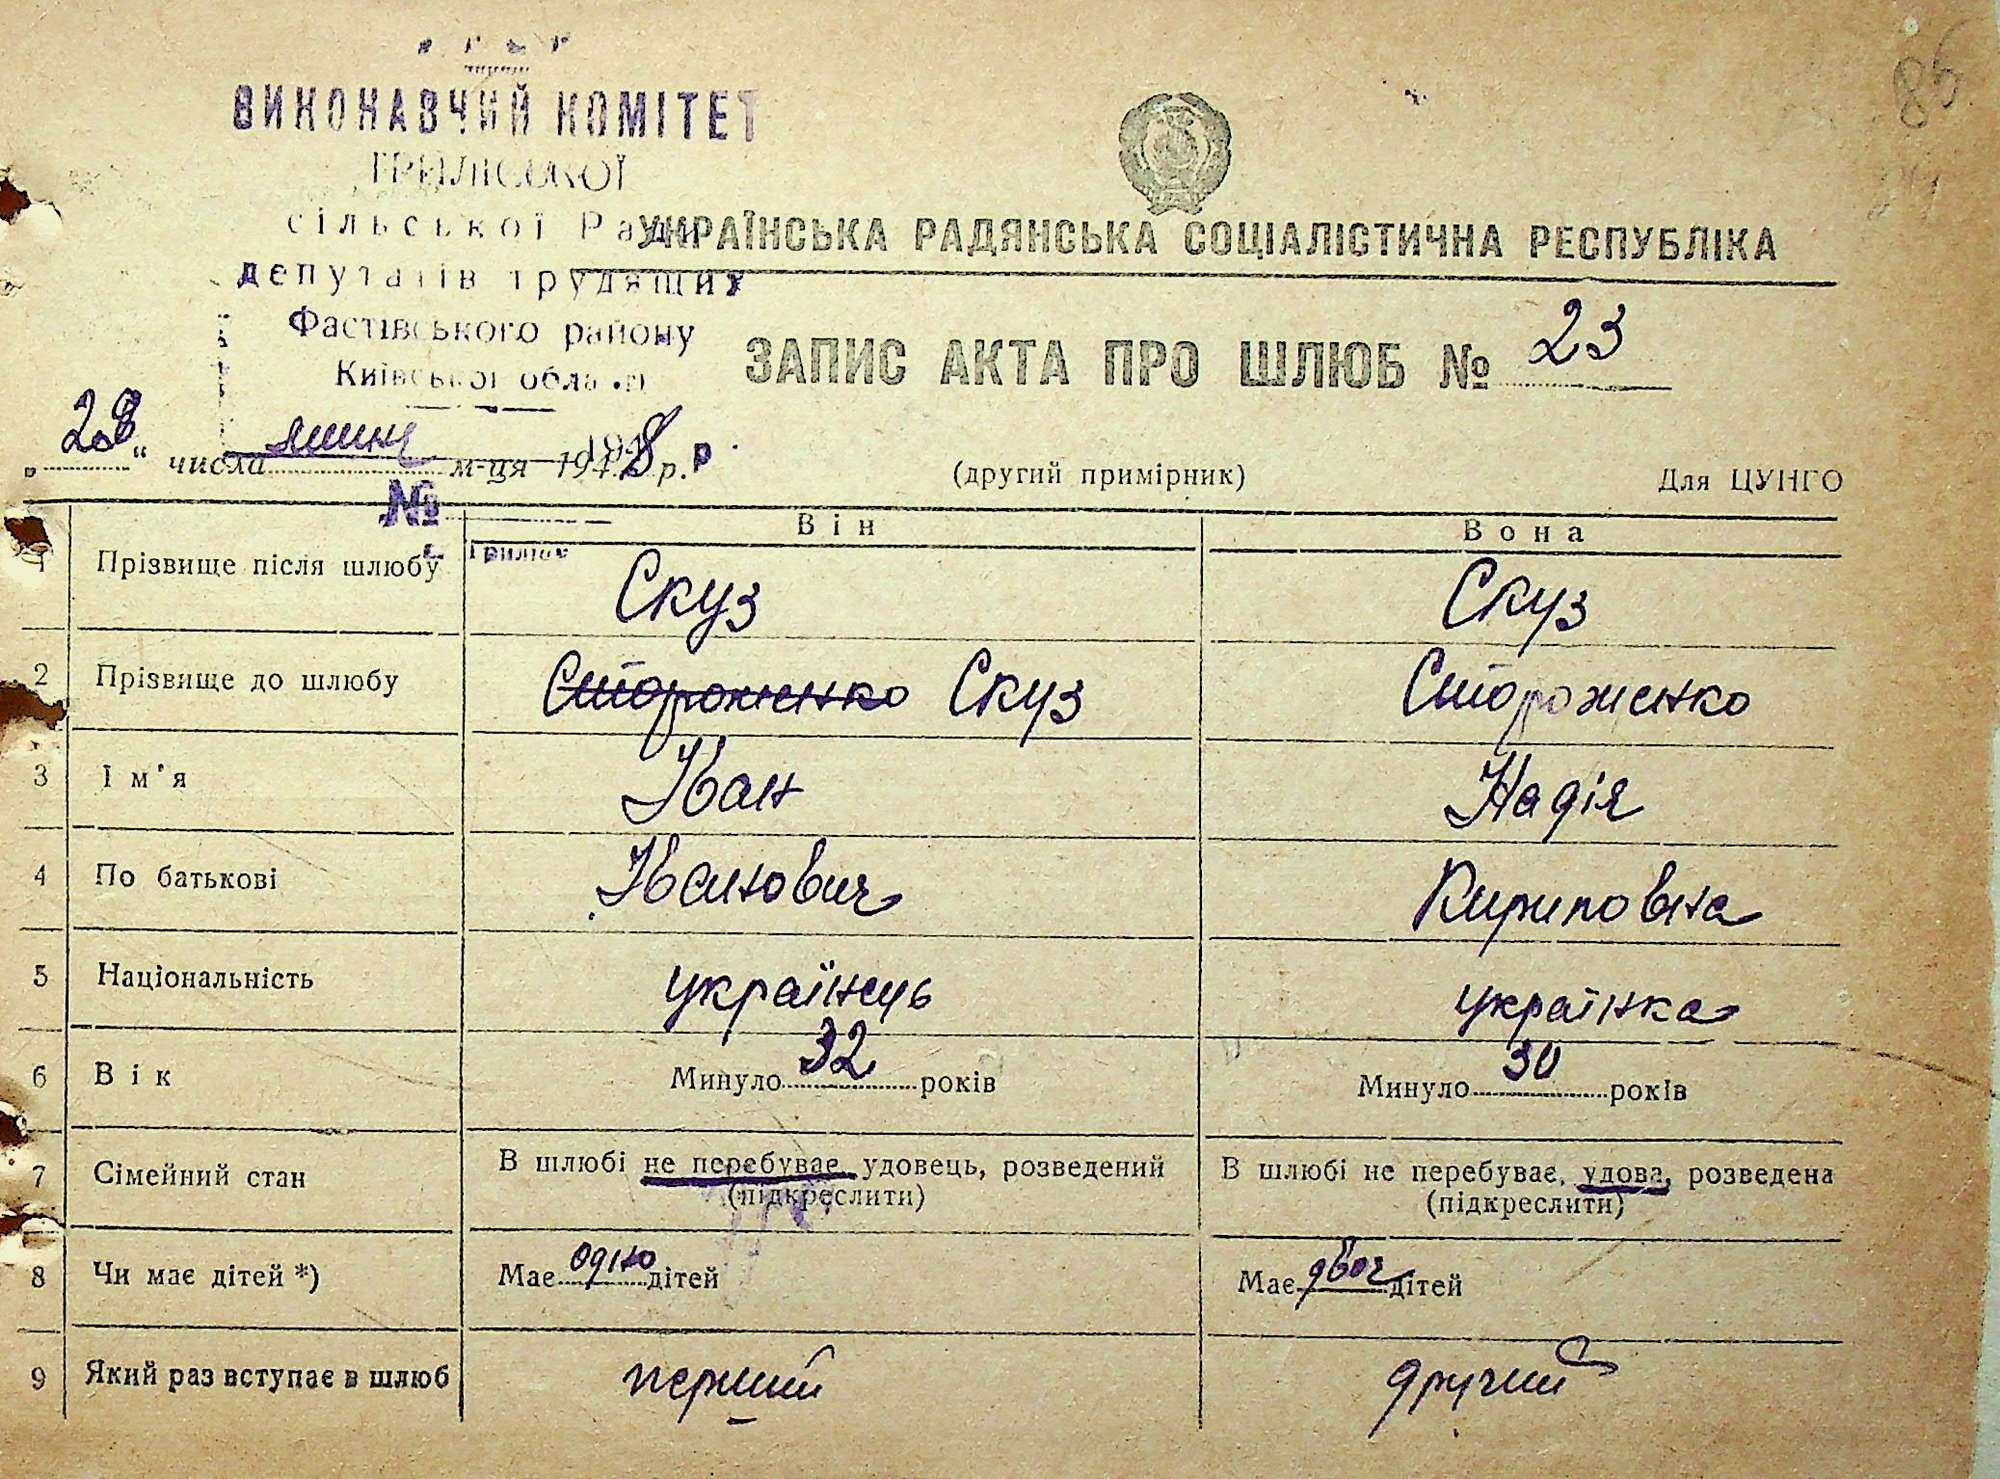 86
ВИКОНАВЧИЙ КОМІТЕТ
сільської Ради
депутатів трудящих
Фастівського району
Київської
УКРАЇНСЬКА РАДЯНСЬКА СОЦІАЛІСТИЧНА РЕСПУБЛІКА
ЗАПИС АКТА ПРО ШЛЮБ № 23
„28“ числа м-ця 1948 р.
(другий примірник) Для ЦУНГО
№
Він Вона
1 Прізвище після шлюбу Скуз Скуз
2 Прізвище до шлюбу Стороженко Скуз Стороженко
3 Ім'я Іван Надія
4 По батькові Іванович Кириловна
5 Національність українець українка
6 Вік Минуло 32 років Минуло 30 років
7 Сімейний стан В шлюбі не перебуває, удовець, розведений В шлюбі не перебуває, удова, розведена
(підкреслити) (підкреслити)
8 Чи має дітей *) Має одно дітей Має двоє дітей
9 Який раз вступає в шлюб перший другий